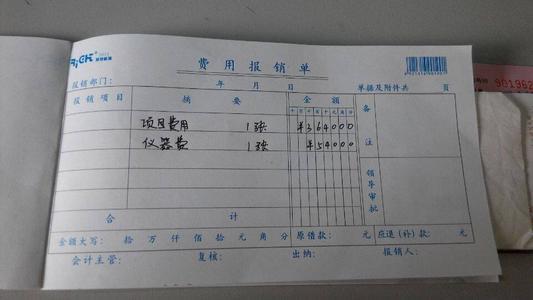 RiCH
费用报销单
报销部门： 年 月 日 单据及附件共 页
报销项目 摘要 金额 备注
十 万 千 百 十 元 角 分
项目费用 1张 ¥364000
仪器费 1张 ¥54000
领导审批
合计
金额大写： 拾 万 仟 佰 拾 元 角 分 原借款： 元 应退（补）款： 元
会计主管： 复核： 出纳： 报销人：